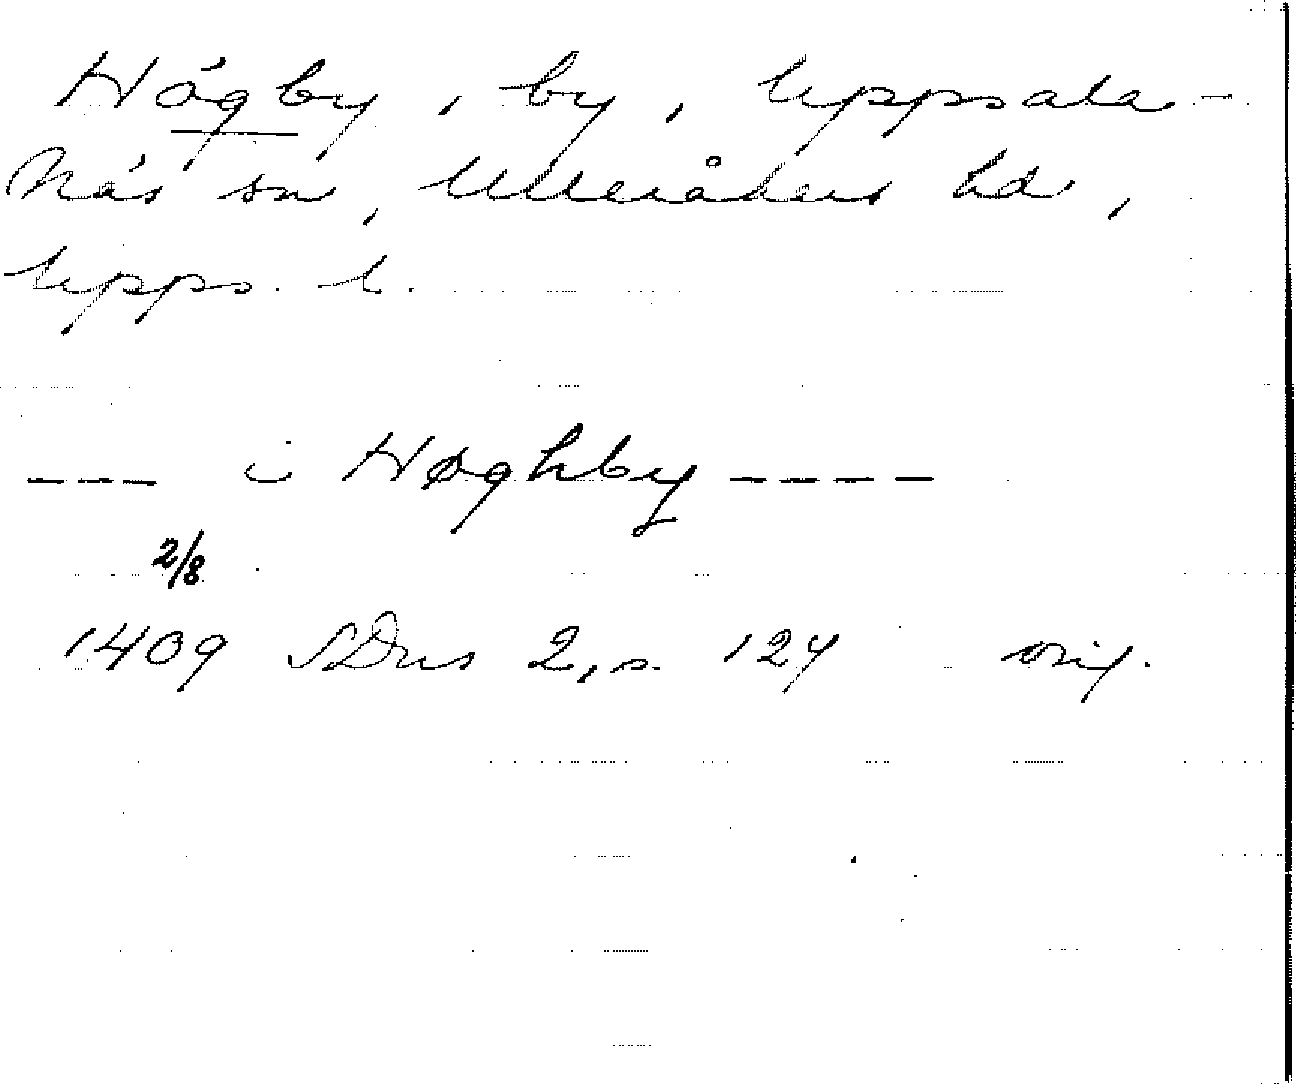 Högby, by, Uppsala-
Näs sn, Ulleråkers hd,
Upps. l.
--- i Høghby ----
2/8
1409 SDns 2, s. 127 orig.